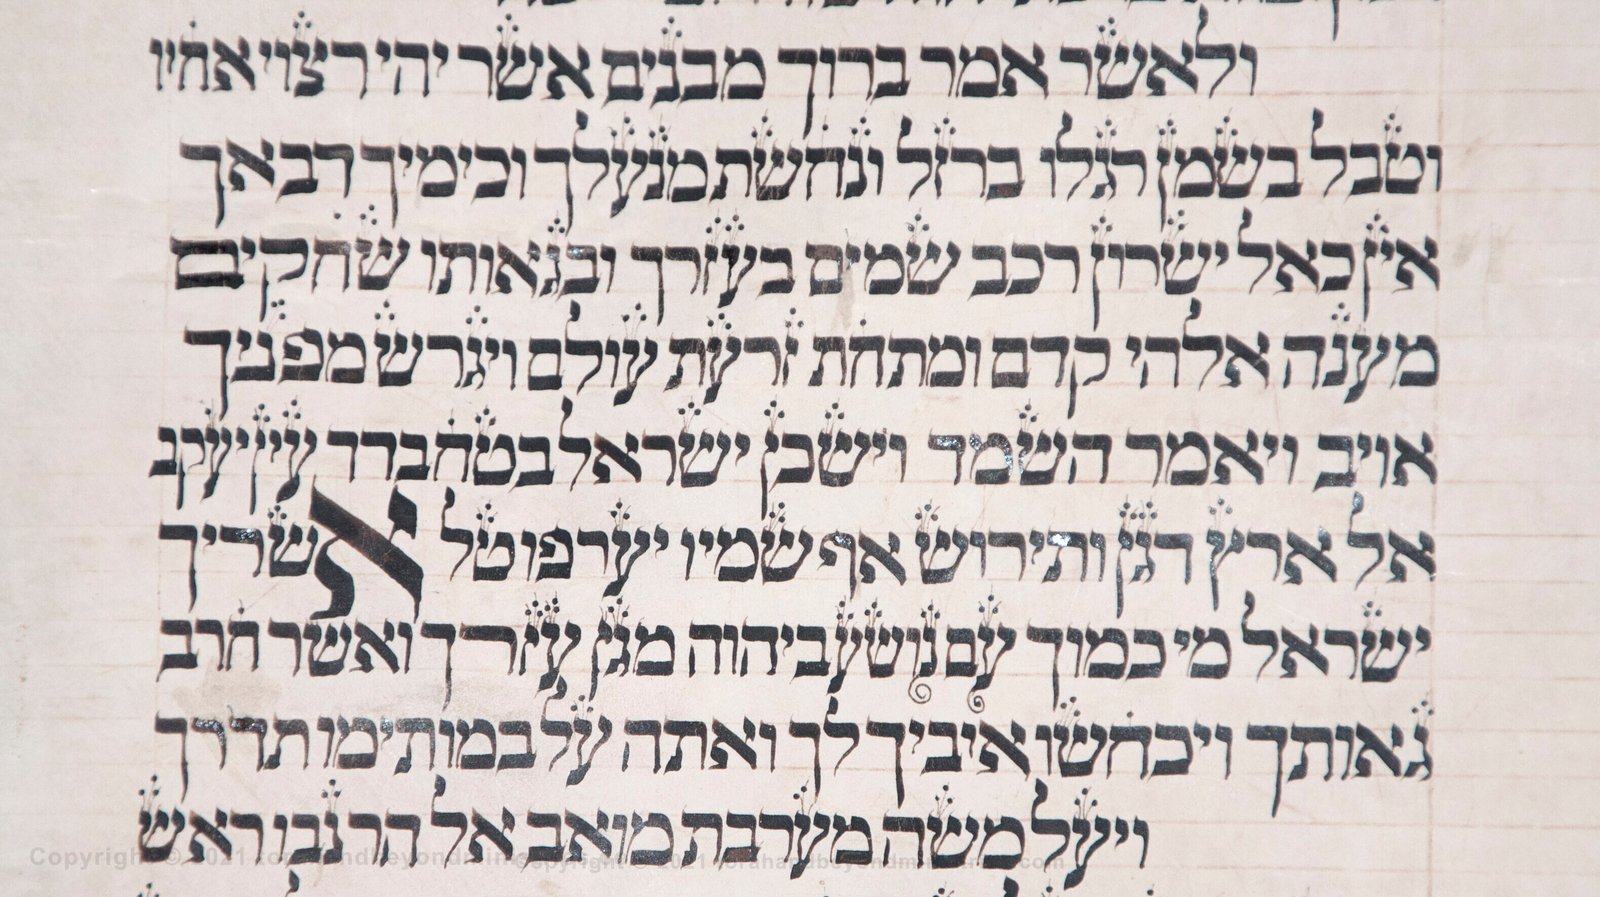 ולאשר אמר ברוך מבנים אשר יהי רצוי אחיו
וטבל בשמן רגלו ברזל ונחשת מנעלך וכימיך דבאך
אין כאל ישרון רכב שמים בעזרך ובגאותו שחקים
מענה אלהי קדם ומתחת זרעת עולם ויגרש מפניך
אויב ויאמר השמד וישכן ישראל בטח בדד עין יעקב
אל ארץ דגן ותירוש אף שמיו יערפו טל אשריך
ישראל מי כמוך עם נושע ביהוה מגן עזרך ואשר חרב
גאותך ויכחשו איביך לך ואתה על במותימו תדרך
ויעל משה מערבת מואב אל הר נבו ראש